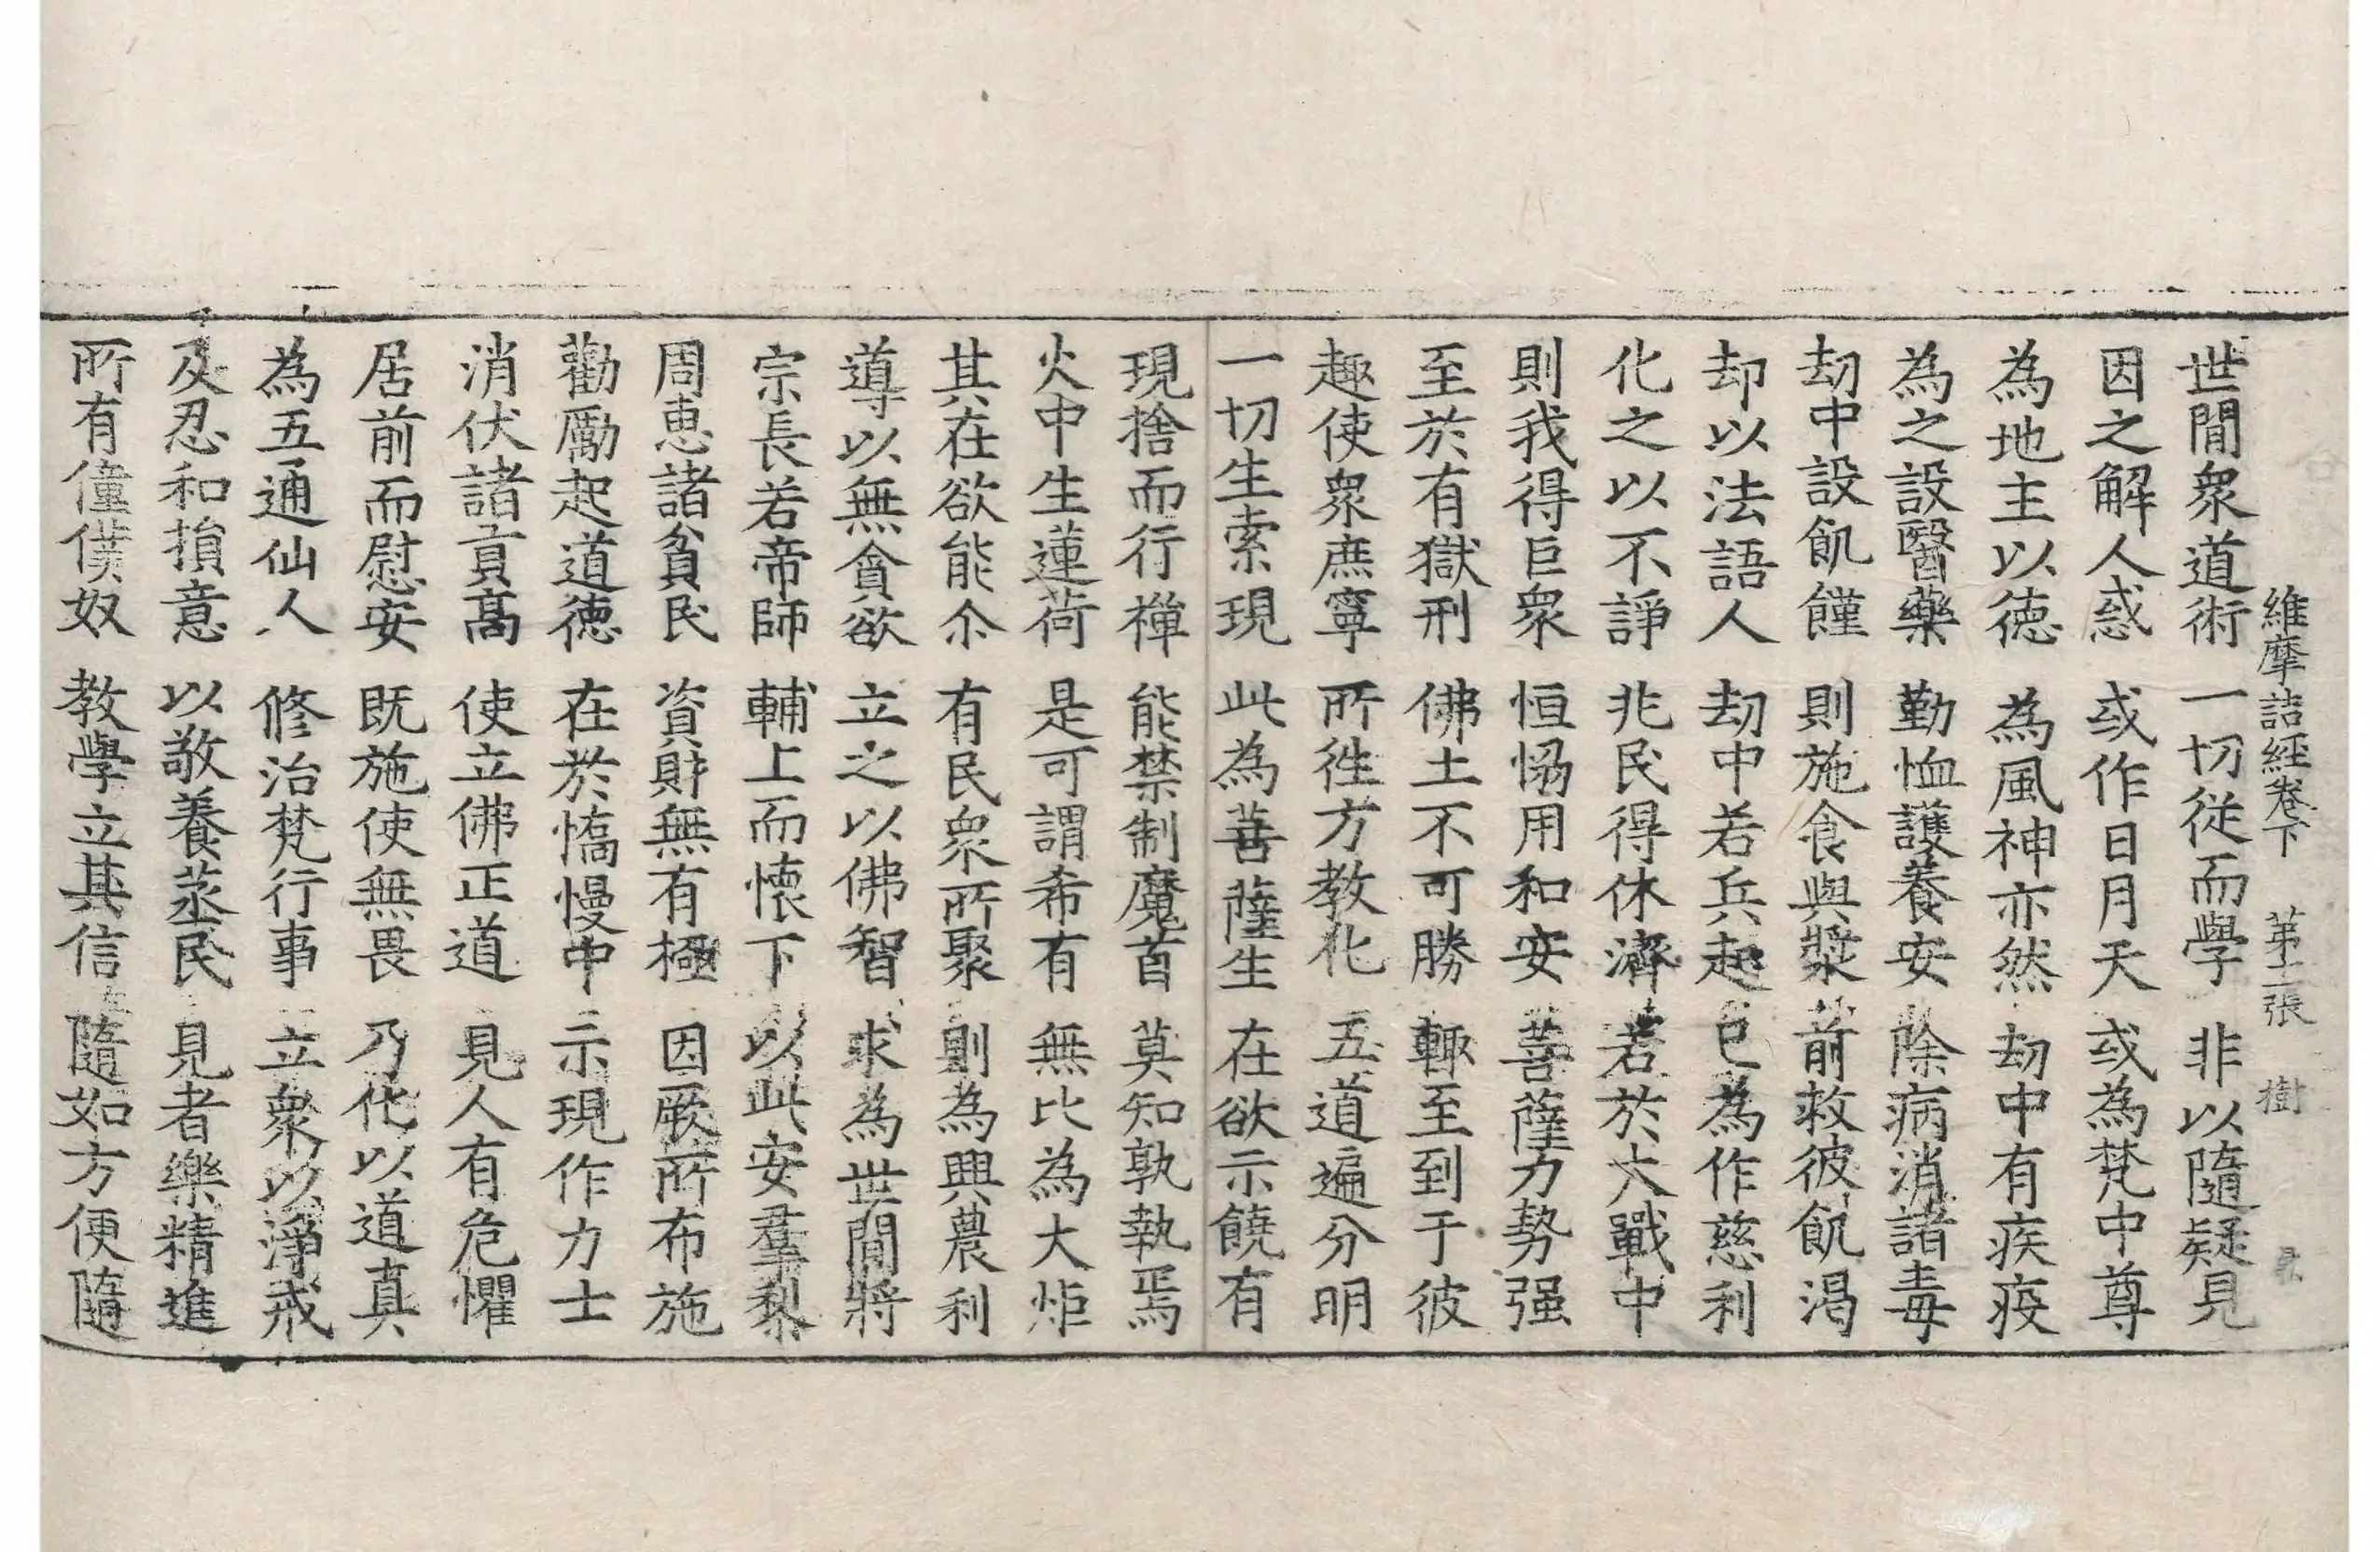 維摩詰經卷下 第二張 樹
世間衆道術 一切從而學 非以隨疑見
因之解人惑 或作日月天 或為梵中尊
為地主以德 為風神亦然 劫中有疾疫
為之設醫藥 勤恤護養安 除病消諸毒
劫中設飢饉 則施食與漿 前救彼飢渴
却以法語人 劫中若兵起 已為作慈利
化之以不諍 兆民得休濟 若於大戰中
則我得巨衆 恒恊用和安 菩薩力勢强
至於有獄刑 佛土不可勝 輙至到于彼
趣使衆庶寧 所徃方教化 五道遍分明
一切生索現 此為菩薩生 在欲示饒有
現捨而行禪 能禁制魔首 莫知孰執焉
火中生蓮荷 是可謂希有 無比為大炬
其在欲能尒 有民衆所聚 則為興農利
導以無貪欲 立之以佛智 求為世間將
宗長若帝師 輔上而懷下 以此安羣黎
周恵諸貧民 資財無有極 因厥所布施
勸勵起道德 在於憍慢中 示現作力士
消伏諸貢高 使立佛正道 見人有危懼
居前而慰安 既施使無畏 乃化以道真
為五通仙人 修治梵行事 立衆以淨戒
及忍和損意 以敬養蒸民 見者樂精進
所有僮僕奴 教學立其信 隨如方便隨